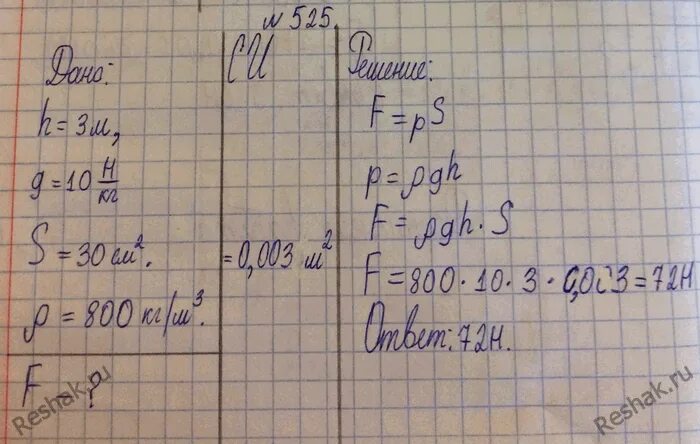 № 525.
Дано:
h = 3м,
g = 10 Н/кг
S = 30 см².
ρ = 800 кг/м³.
F - ?
СИ
= 0,003 м²
Решение:
F = pS
p = ρgh
F = ρgh · S
F = 800 · 10 · 3 · 0,003 = 72Н
Ответ: 72Н.
Reshak.ru
Reshak.ru